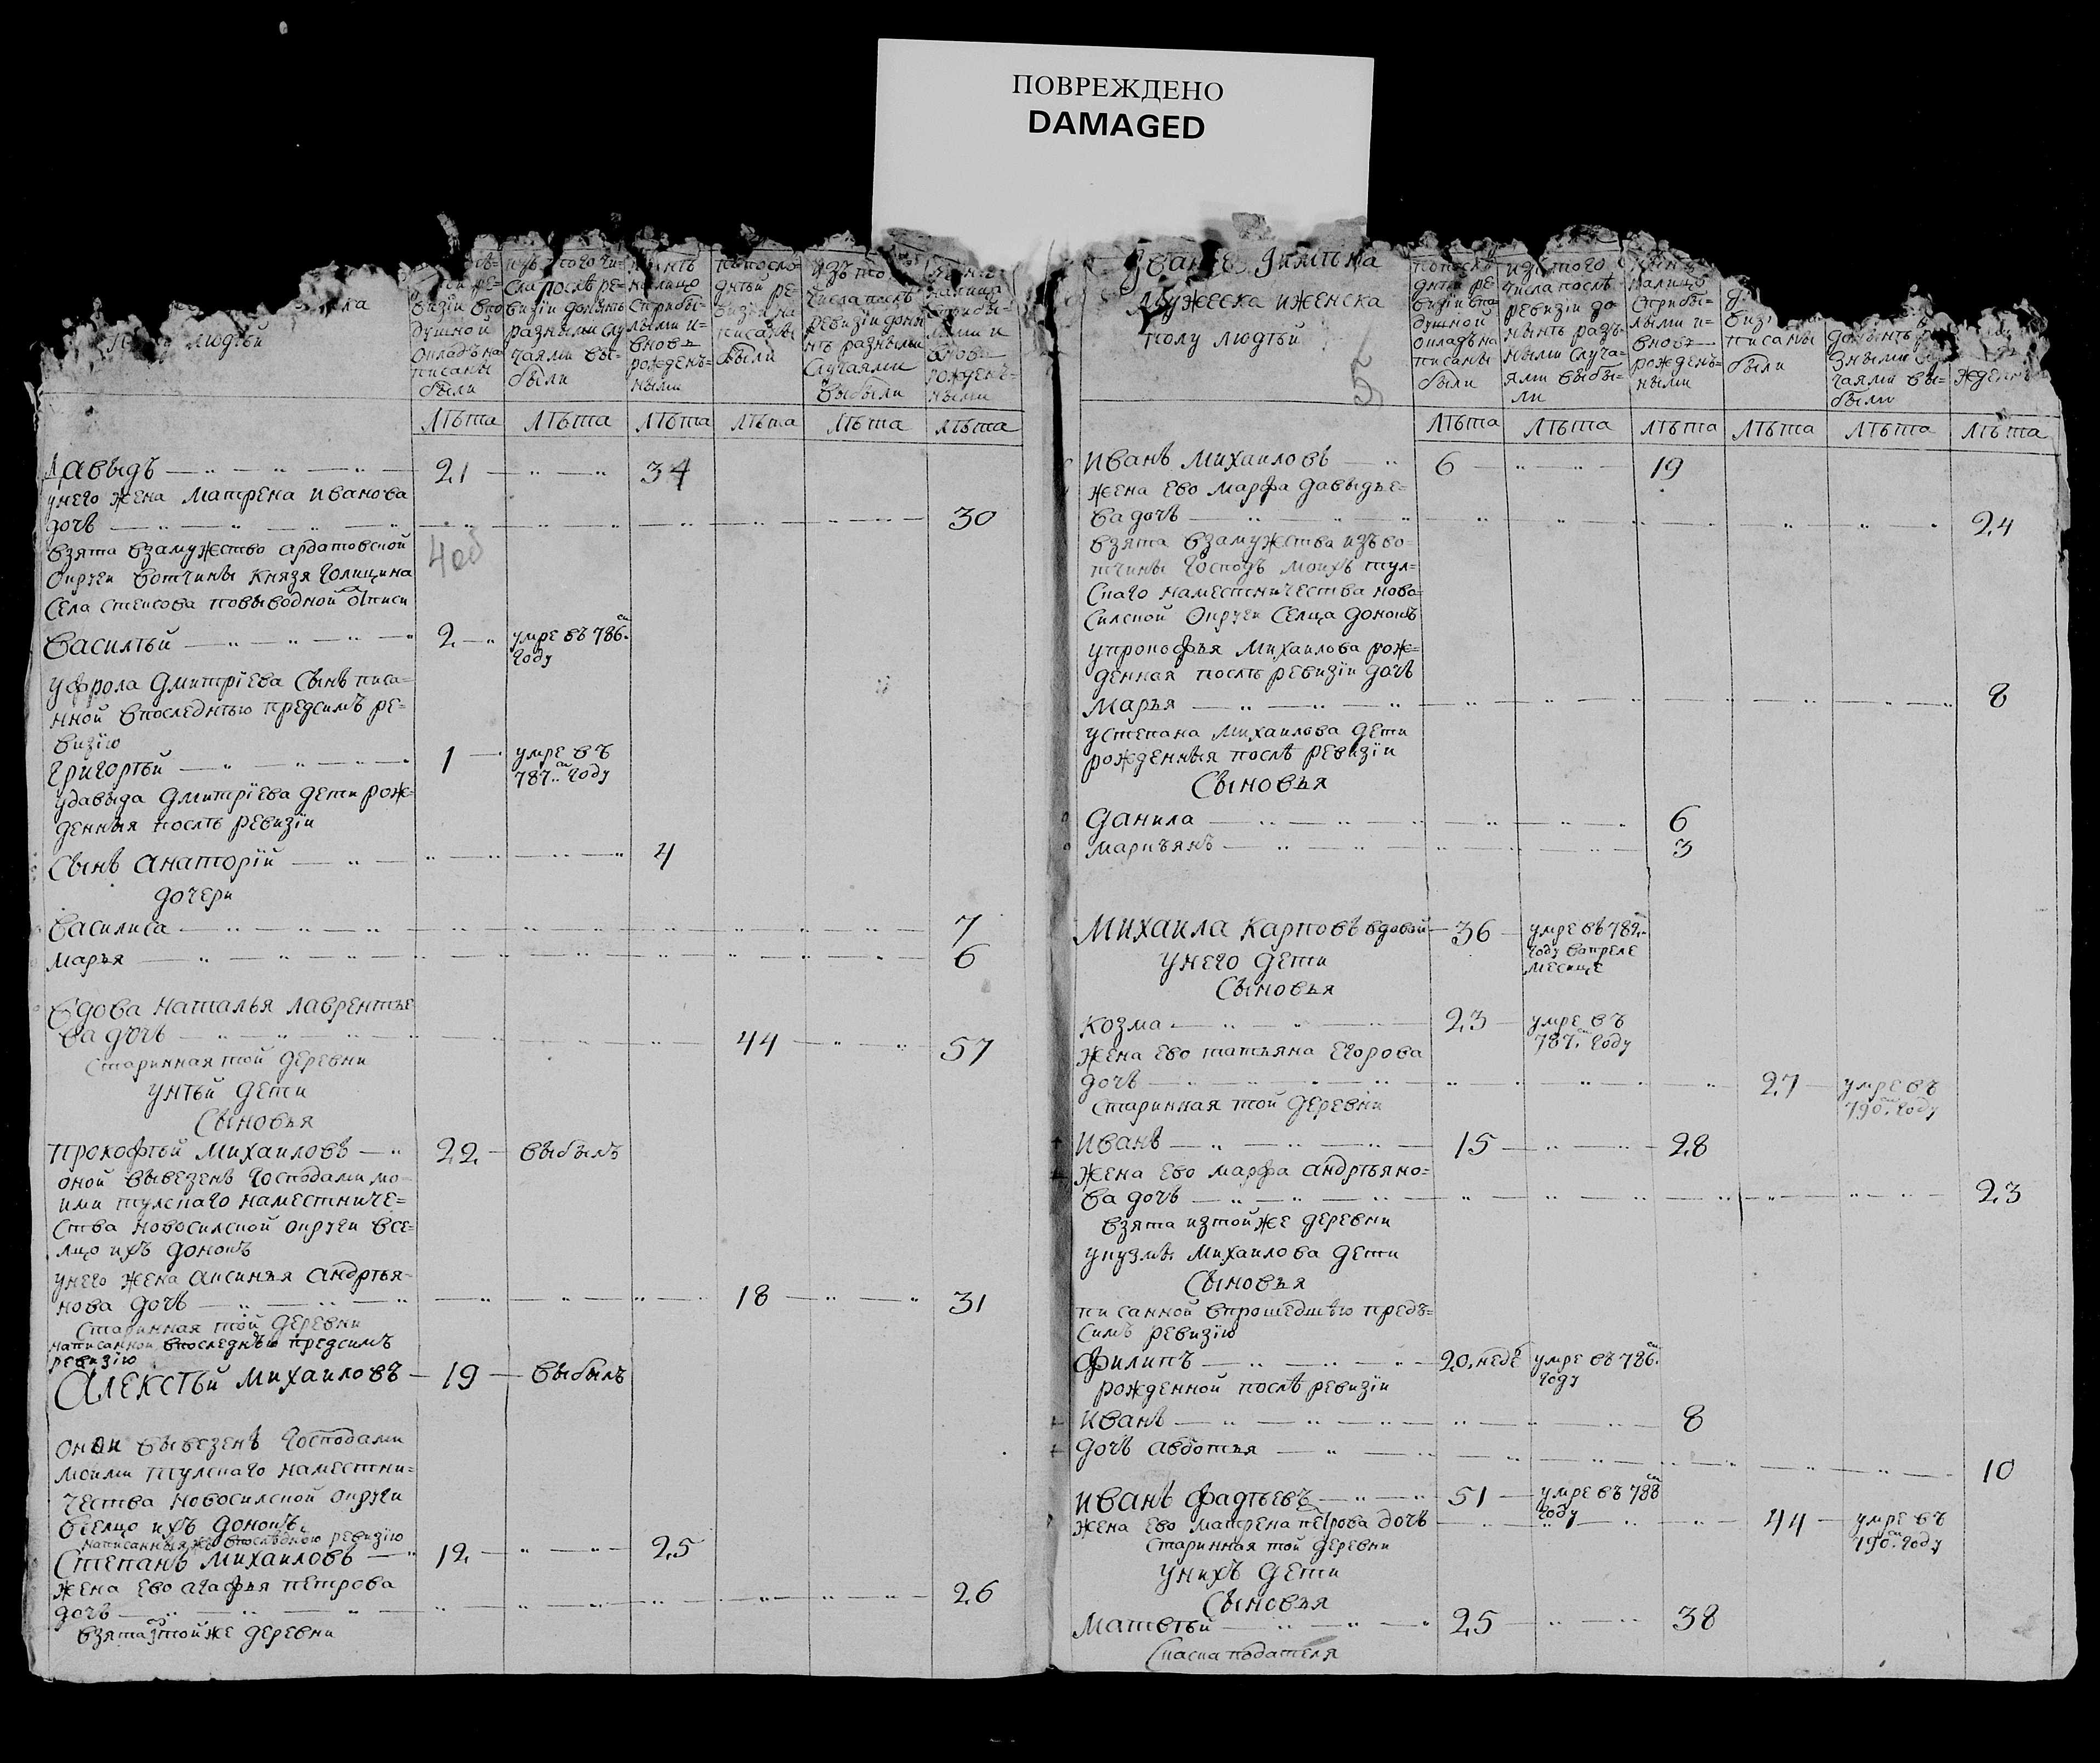 ПОВРЕЖДЕНО
DAMAGED
людѣй
визіи
душной
окладъ на
писаны
были
сла послѣ ре=
визіи донынѣ
разными слу
чаями вы=
были
налицо
сприбы=
лыми и=
вновь
рожденъ=
ными
попослѣ
дней ре
визіи на
писаны
были
изъ то
числа послѣ
ревизіи доны
нѣ разными
случаями
выбыли
налицо
лыми и
вновь
рожденъ=
ными
лѣта лѣта лѣта лѣта лѣта лѣта
давыдъ 21 34
унего жена матрена иванова
дочь 30
взята взамужство ардатовской
округи вотчины князя голицина
села стексова повыводной отписи
40б
василѣй 2 умре въ 786.м
году
уфрола дмитріева сынъ писа=
нной впоследнѣю предсимъ ре=
визію
григорѣй 1 умре въ
787.м году
удавыда дмитріева дети рож=
денныя послѣ ревизіи
сынъ анаторій 4
дочери
василиса 7
марья 6
вдова наталья лаврентье
ва дочь 44 57
старинная той деревни
унѣй дети
сыновья
прокофѣй михаиловъ 22 выбылъ
оной вывезенъ господами мо=
ими тулскаго наместниче=
ства новосилской округи все=
лцо ихъ
унего жена аксинья андрѣя=
нова дочь 18 31
старинная той деревни
написанной впоследнѣю предсимъ
ревизію
Алексѣй михаиловъ 19 выбылъ
вывезенъ господами
моими тулскаго наместни=
чества новосилской округи
вселцо ихъ
написанныя же впослѣднюю ревизію
Степанъ Михаиловъ 12 25
жена ево агафья петрова
дочь 26
взята изтой же деревни
званіе
мужеска иженска
полу людѣй
5
попослѣ
дней ре
визіи впо
душной
окладъ на
писаны
были
изътого
числа послѣ
ревизіи до
нынѣ разъ=
ными случа=
ями выбы=
ли
налицо
сприбы=
лыми и=
вновь
рожденъ=
ными
визі
писаны
были
донынѣ
зными
чаями вы=
были
жденъ
лѣта лѣта лѣта лѣта лѣта лѣта
иванъ михаиловъ 6 19
жена ево марфа давыдье=
ва дочь 24
взята взамужства изъ во=
тчины господъ моихъ тул=
скаго наместничества ново=
силской округи селца
упрокофья михаилова рож=
денная послѣ ревизіи дочь
марья 8
устепана михаилова дети
рожденныя послѣ ревизіи
сыновья
данила 6
маркъянъ 3
Михаила Карповъ вдовой 36 умре въ 782м
году вапреле
месяце
унего дети
сыновья
козма 23 умре въ
787.м году
жена ево татьяна егорова
дочь 27 умре въ
790.м году
старинная той деревни
иванъ 15 28
жена ево марфа андрѣяно=
ва дочь 23
взята изтой же деревни
укузмы михаилова дети
сыновья
писанной впрошедшѣю предъ=
симъ ревизію
филипъ 20. неде умре въ 786.м
году
рожденной послѣ ревизіи
иванъ 8
дочь авдотья 10
иванъ фадѣевъ 51 умре въ 788м
году
жена ево матрена петрова дочь 44 умре въ
790.м году
старинная той деревни
унихъ дети
сыновья
матвѣй 25 38